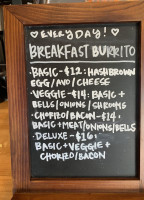 ♡ EVERYDAY! ♡
BREAKFAST BURRITO
·BASIC-$12: HASHBROWN
EGG/AVO/CHEESE
·VEGGIE-$14: BASIC +
BELLS/ONIONS/SHROOMS
·CHORIZO/BACON-$14:
BASIC+MEAT/ONIONS/BELLS
·DELUXE-$16:
BASIC+VEGGIE+
CHORIZO/BACON